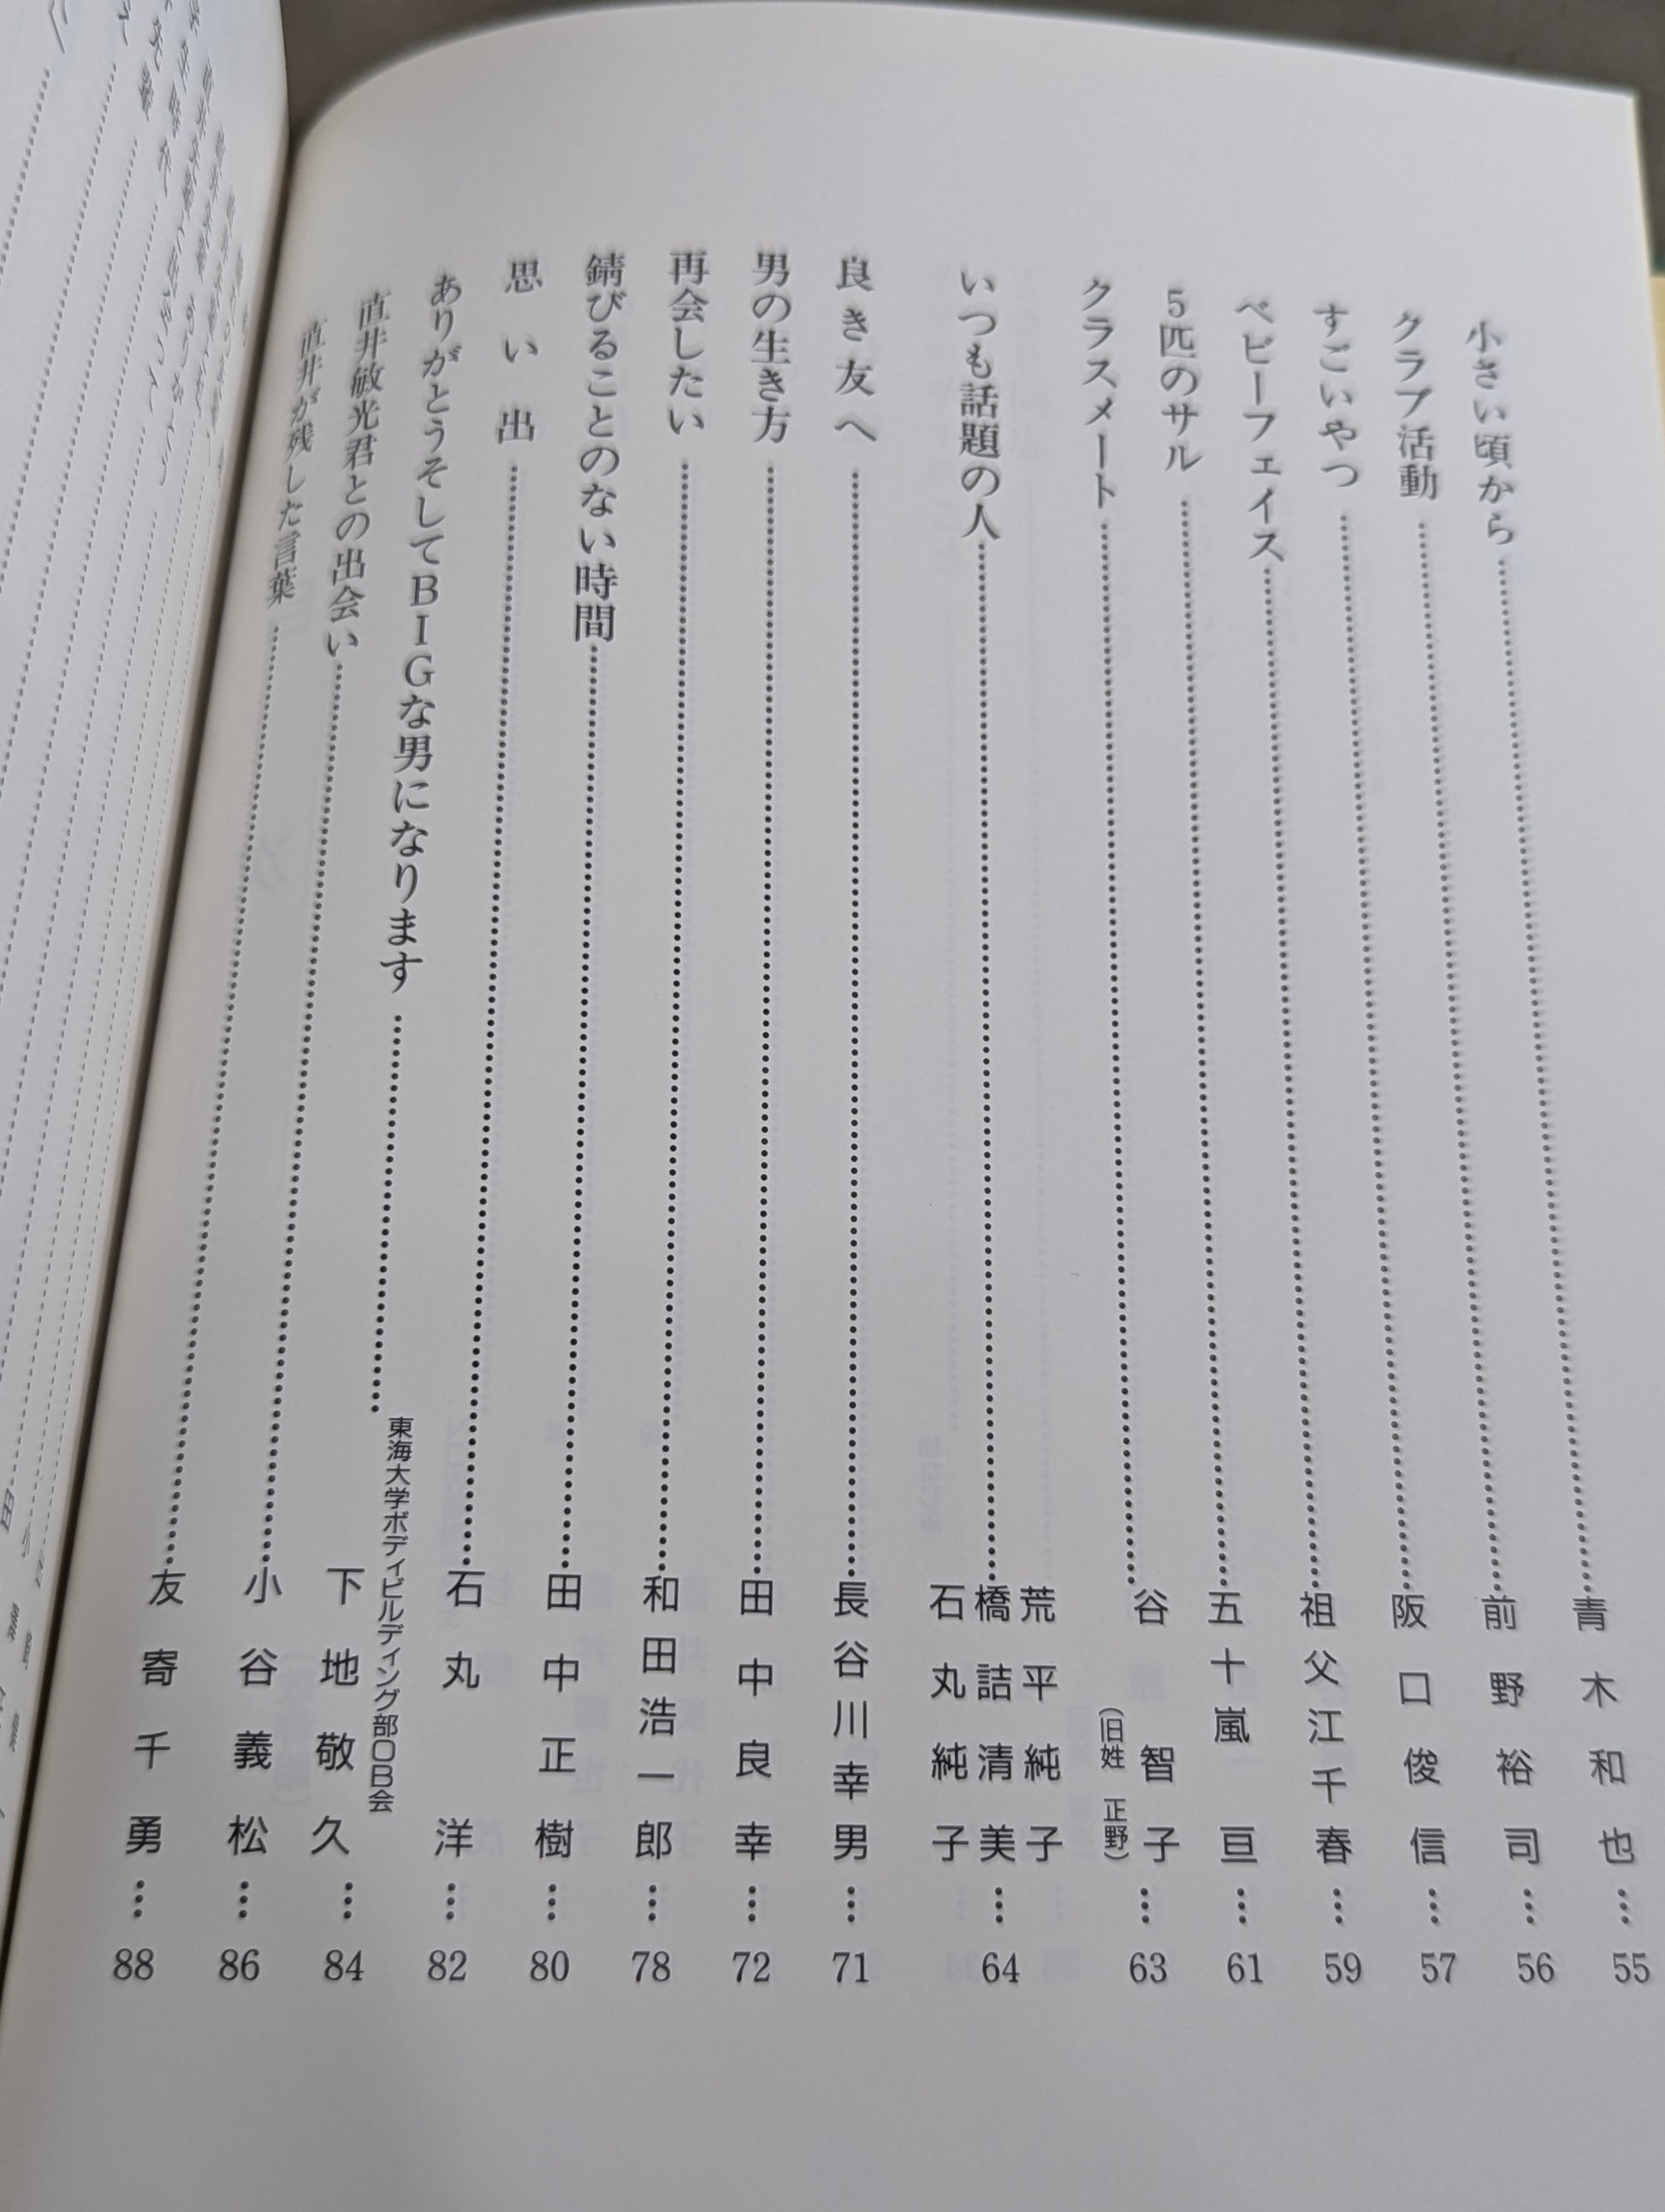 小さい頃から……青木和也…55
クラブ活動……前野裕司…56
すごいやつ……阪口俊信…57
ベビーフェイス……祖父江千春…59
5匹のサル……五十嵐亘…61
クラスメート……谷智子(旧姓 正野)…63
いつも話題の人……荒平純子 橋詰清美 石丸純子…64
良き友へ……長谷川幸男…71
男の生き方……田中良幸…72
再会したい……和田浩一郎…78
錆びることのない時間……田中正樹…80
思い出……石丸洋…82
ありがとうそしてBIGな男になります……東海大学ボディビルディング部OB会 下地敬久…84
直井敏光君との出会い……小谷義松…86
直井が残した言葉……友寄千勇…88